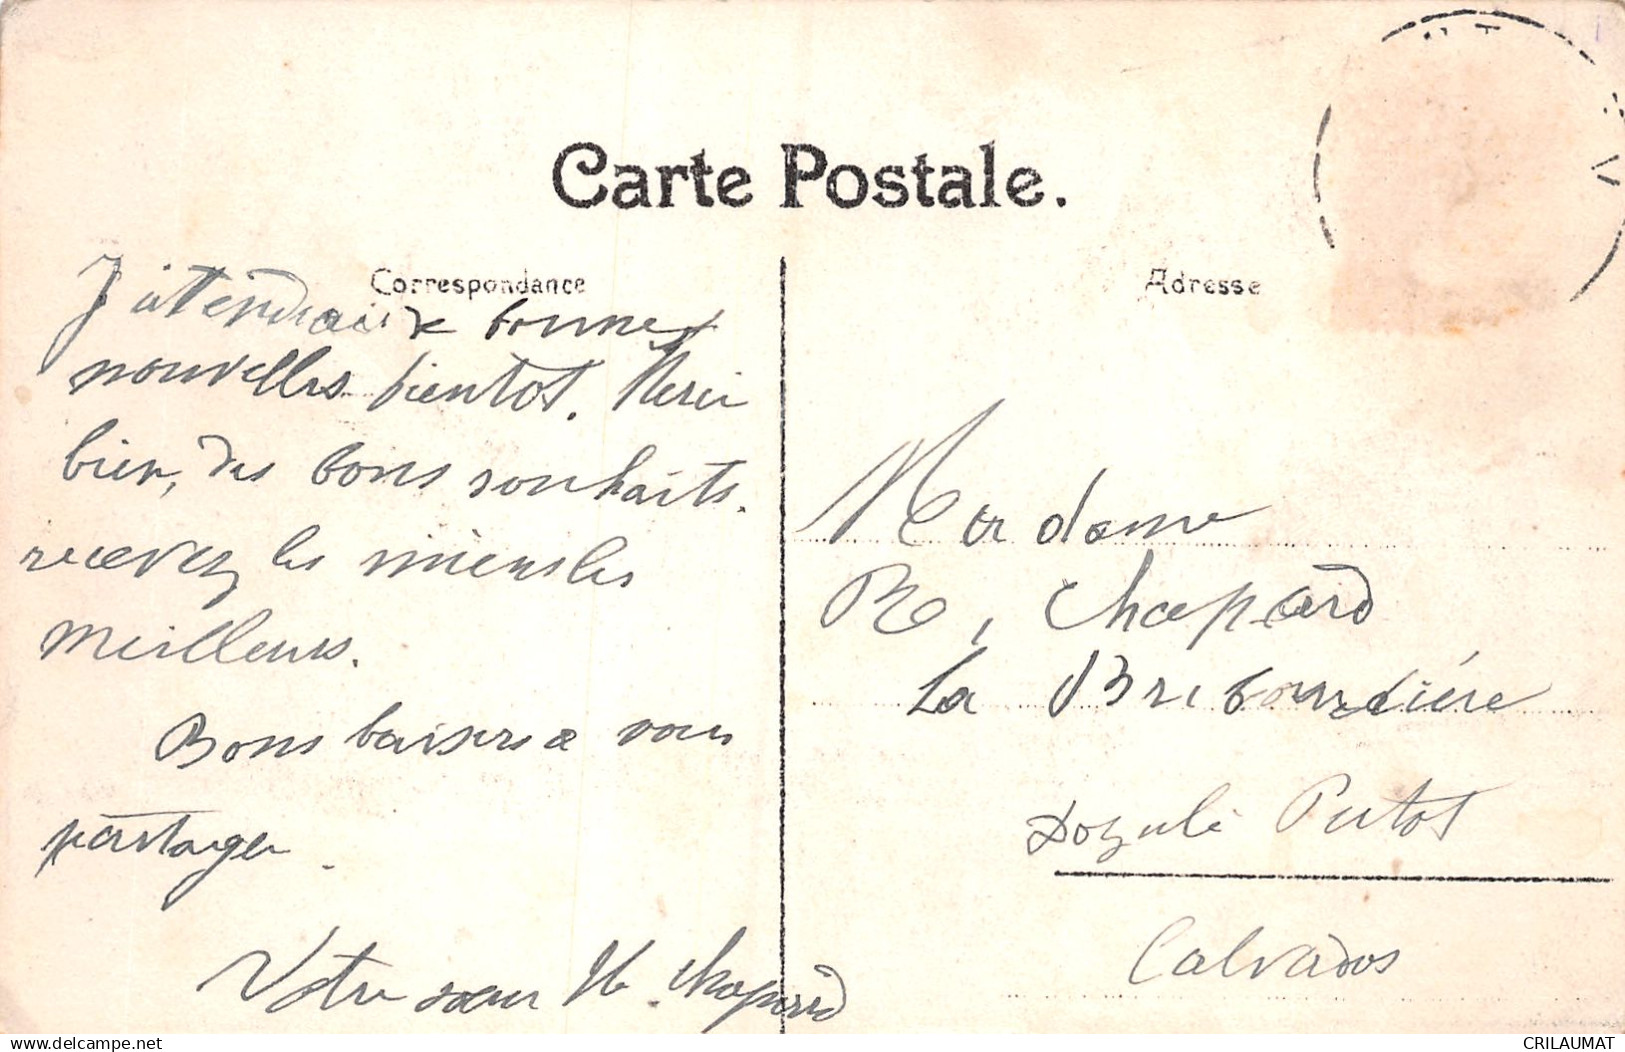 Carte Postale.
Correspondance
Adresse
J'attendrai de bonnes
nouvelles bientot. Merci
bien, des bons souhaits.
recevez les miens les
meilleurs.
Bons baisers a vous
partager.
Votre soeur H. Chapard
Madame
R, Chapard
La Bribourdière
Dozulé Putot
Calvados
delcampe.net
CRILAUMAT